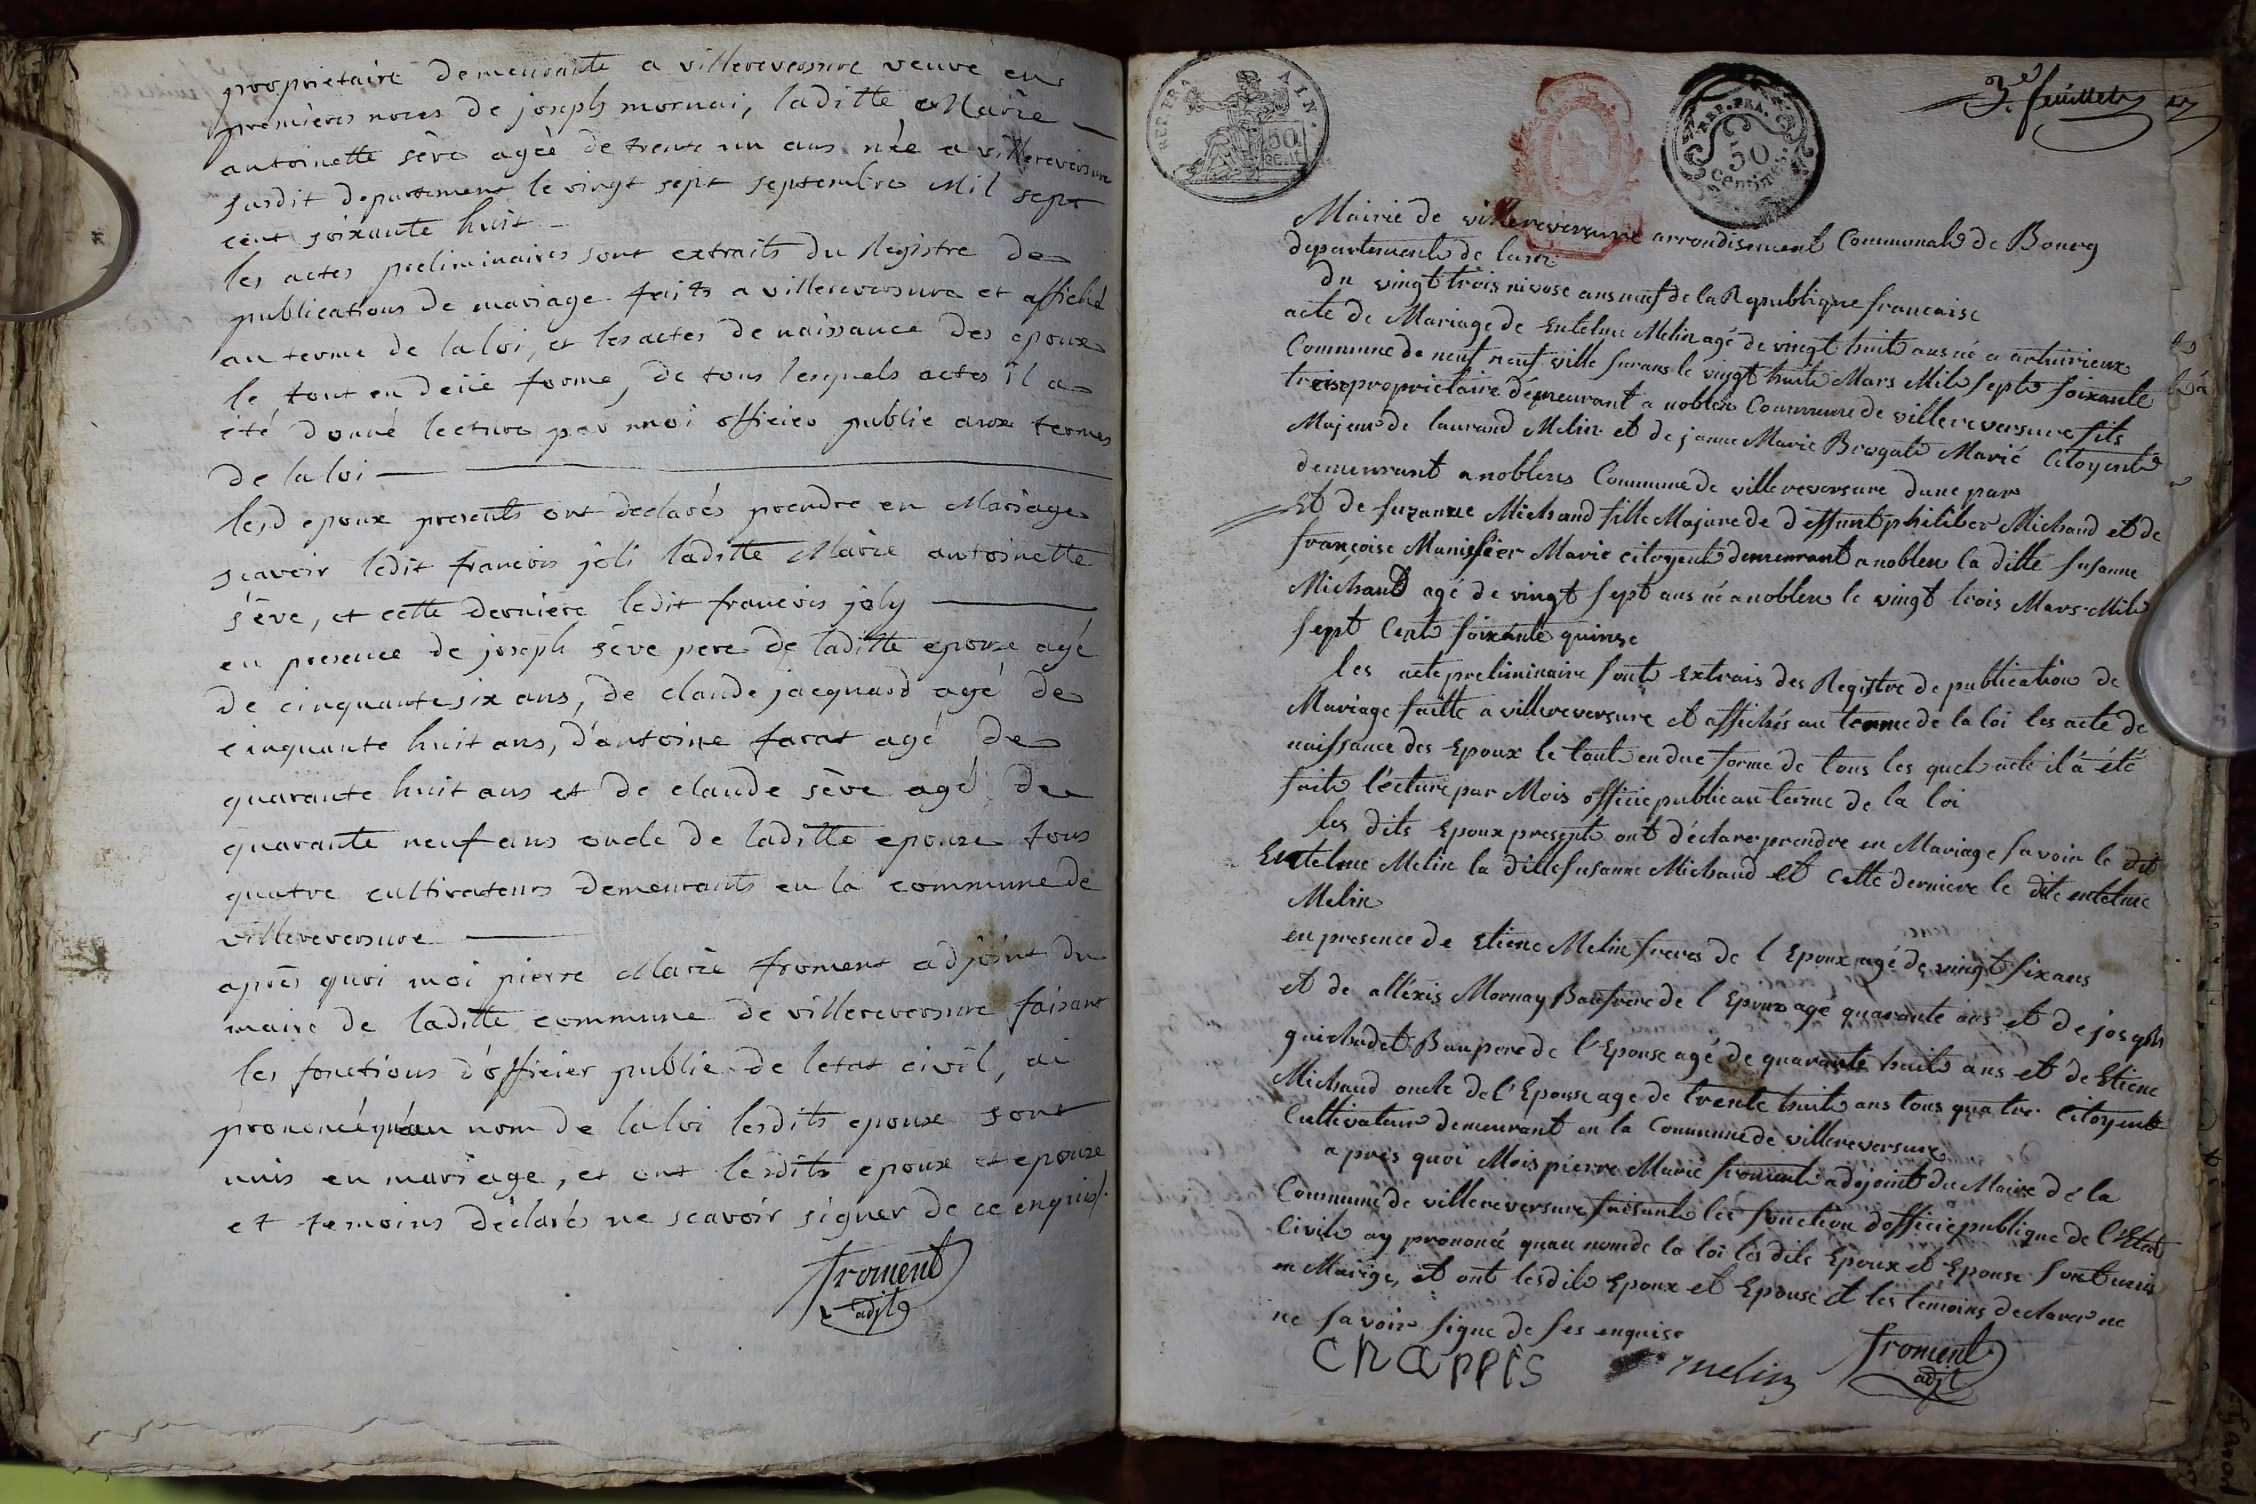 propriétaire demeurante a villereversure veuve en
premières noces de joseph mornai, laditte Marie
antoinette sève agéé de trente un ans née a villereversure
susdit departement le vingt sept septembre Mil sept
cent soixante huit
les actes preliminaires sont extraits du Registre de
publications de mariage faits a villereversure et affiché
au terme de la loi, et les actes de naissance des epoux
le tout en deüe forme, de tous lesquels actes il a
été donné lecture par moi officier public aux termes
de la loi
lesd epoux presents ont declarés prendre en Mariage
scavoir ledit francois joli laditte Marie antoinette
sève, et cette derniere ledit francois joly
en presence de joseph sève pere de laditte epouse agé
de cinquante six ans, de claude jacquard agé de
cinquante huit ans, d'antoine farat agé de
quarante huit ans et de claude sève agé de
quarante neuf ans oncle de laditte epouse tous
quatre cultivateurs demeurants en la commune de
villereversure
après quoi moi pierre Marie froment adjoint du
maire de laditte commune de villereversure faisant
les fonctions d'officier public de letat civil, ai
prononcé qu'au nom de la loi lesdits epoux sont
unis en mariage, et ont lesdits epoux et epouse
et temoins déclarés ne scavoir signer de ce enquis
froment
adjt
REP. FRA. AIN.
50
cent.
REP. FRA.
50
centimes
3e feuillet
Mairie de villereversure arrondissement Communale de Bourg
departement de lain
du vingt trois nivose ans neuf de la Republique francaise
acte de Mariage de Entelme Melin agé de vingt huit ans né a artuirieux
Commune de neuf neuf ville surans le vingt huit Mars Mil sept soixante
treise propriétaire demeurant a noblens Commune de villereversure fils
Majeur de laurand Melin et de janne Marie Brogat Marié Citoyent
demeurant a noblens Commune de villereversure dune par
Et de suzanne Michaud fille Majure de deffunt philiber Michaud et de
françoise Munissier Marie citoyent demeurant a noblens la ditte susanne
Michaud agé de vingt sept ans né a noblens le vingt trois Mars Mil
sept Cent soixante quinse
les acte preliminaire sont Extrais des Registre de publication de
Mariage faitte a villereversure et affichés au terme de la loi les acte de
naissance des Epoux le tout en due forme de tous les quels acte il á été
fait lécture par Mois officie public au terme de la loi
les dits Epoux present ont déclarer prendre en Mariage savoir le dit
Entelme Melin la ditte susanne Michaud et Cette derniere le dit entelme
Melin
en presence de Etiene Melin freres de l Epoux agé de vingt six ans
et de alléxis Mornay Baufrere de l Epoux agé quarante ans et de joseph
guichadet Baupere de l'Epouse agé de quarante huit ans et de Etiene
Michaud oncle de l'Epouse age de trente huit ans tous quatre Citoyent
Cultivateur demeurant en la Commune de villereversure
après quoi Mois pierre Marie froment adjoint du Maire dé la
Commune de villereversure faisant les fonction d'officie publique de l'Etat
Civile ay prononcé quau nom de la loi les dits Epoux et Epouse sont unis
en Marige, et ont lesdits Epoux et Epouse et les temoins declarer ne
ne savoir signe de ses enquise
chappis melin froment
adjt